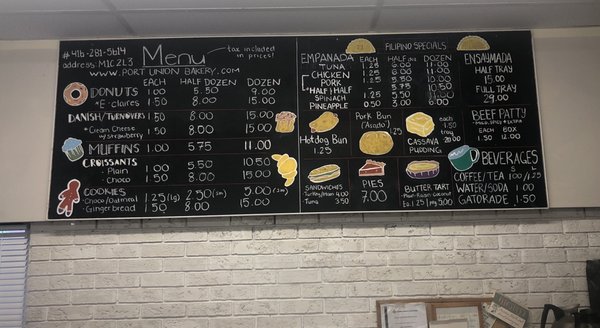 #416-281-5614
address: M1C 2L3
Menu
tax included in prices!
WWW.PORT UNION BAKERY.COM
EACH HALF DOZEN DOZEN
DONUTS 1.00 5.50 9.00
*E'claires 1.50 8.00 15.00
DANISH/TURNOVERS 1.50 8.00 15.00
*Cream Cheese w/strawberry 1.50 8.00 15.00
MUFFINS 1.00 5.75 11.00
CROISSANTS
- Plain 1.00 5.50 10.50
- Choco 1.50 8.00 15.00
COOKIES
*Choco/Oatmeal 1.25 (lg) 2.50 (sm) 5.00 (sm)
- Gingerbread 1.50 8.00 15.00
FILIPINO SPECIALS
EMPANADA EACH HALF DOZEN
TUNA
CHICKEN
PORK
*HALF | HALF
SPINACH
PINEAPPLE 0.50 3.00 6.00
ENSAYMADA
HALF TRAY
15.00
FULL TRAY
29.00
Hotdog Bun
1.25
Pork Bun
(Asado)
1.25
each
1.50
tray
20.00
CASSAVA
PUDDING
BEEF PATTY
EACH BOX
1.00 12.00
SANDWICHES
Turkey/Ham 4.00
Tuna 3.50
PIES
7.00
BUTTER TART
BEVERAGES
COFFEE/TEA 1.00/1.25
WATER/SODA 1.00
GATORADE 1.50